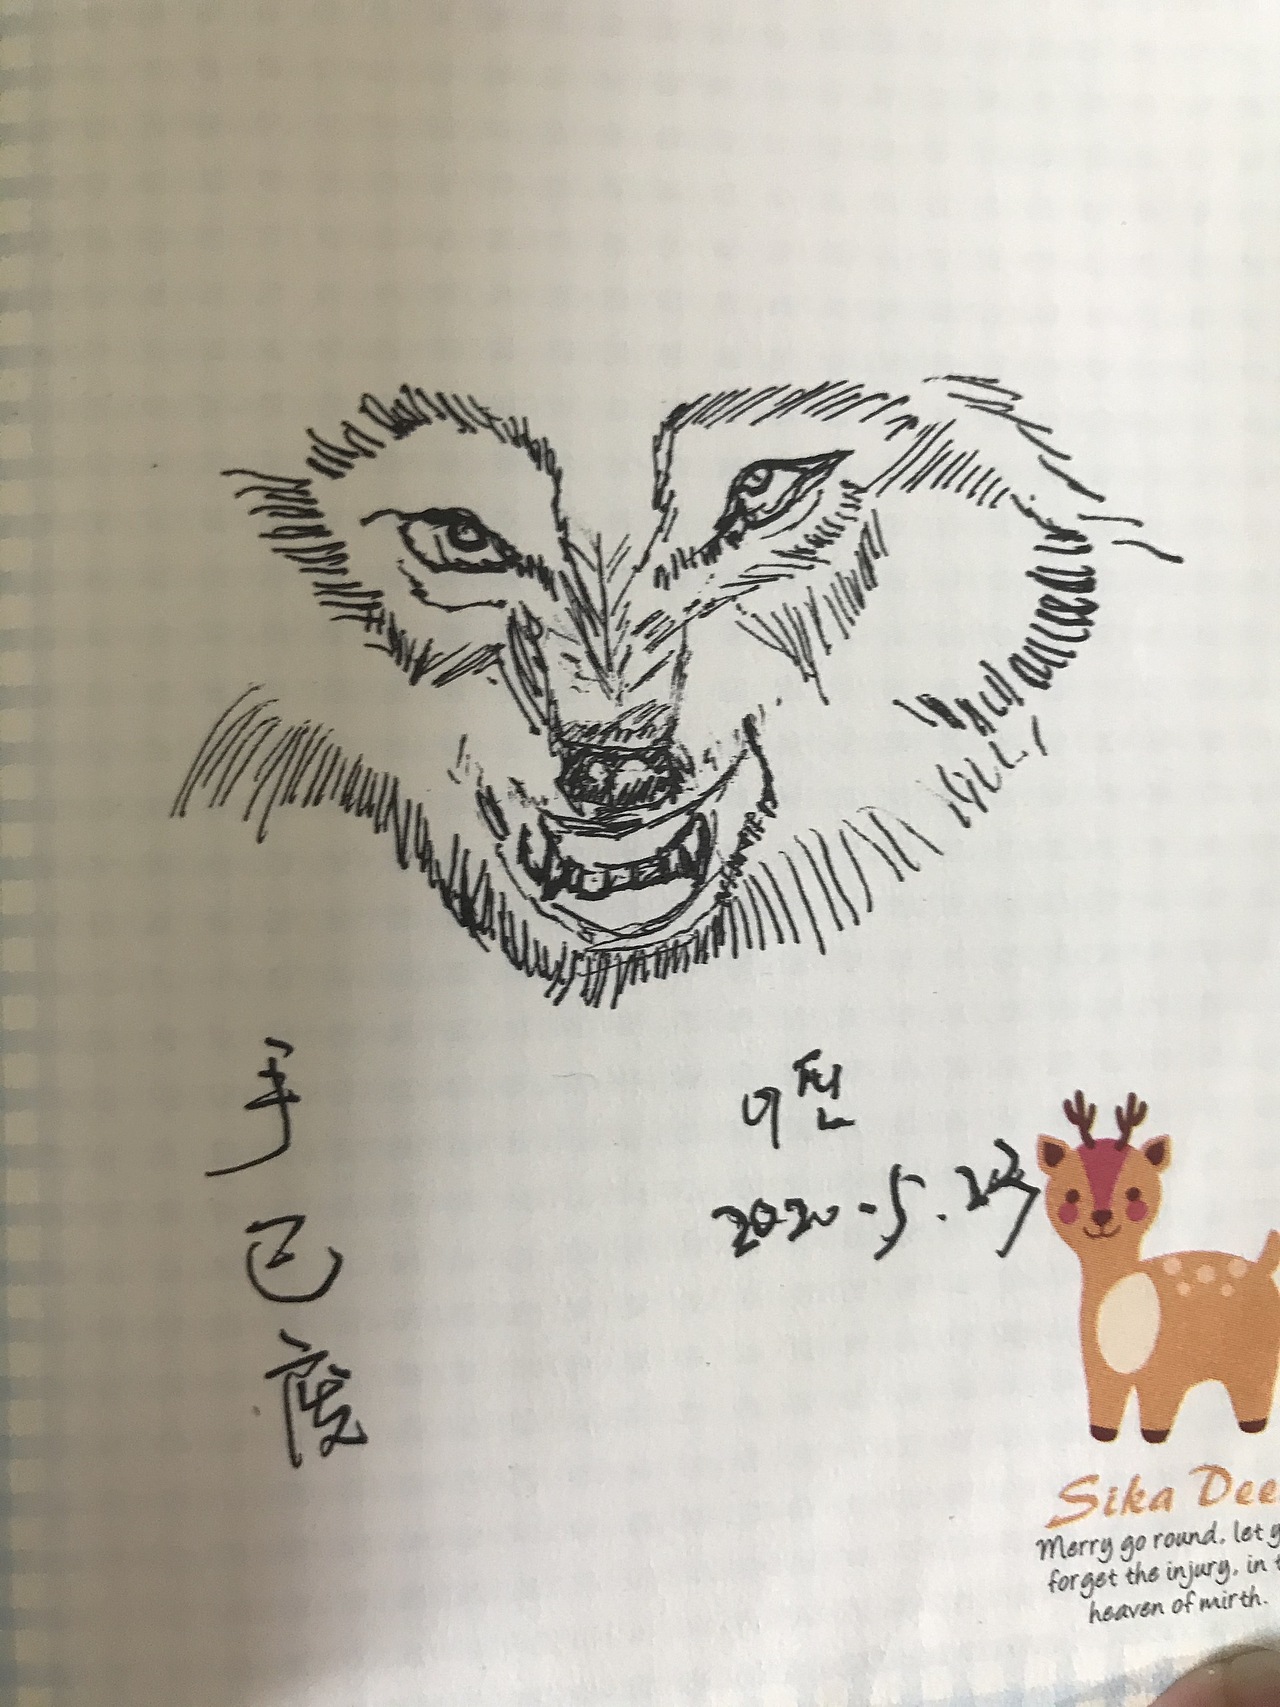 手
已
废
Sika Dee
Merry go round, let y
forget the injury, in t
heaven of mirth.